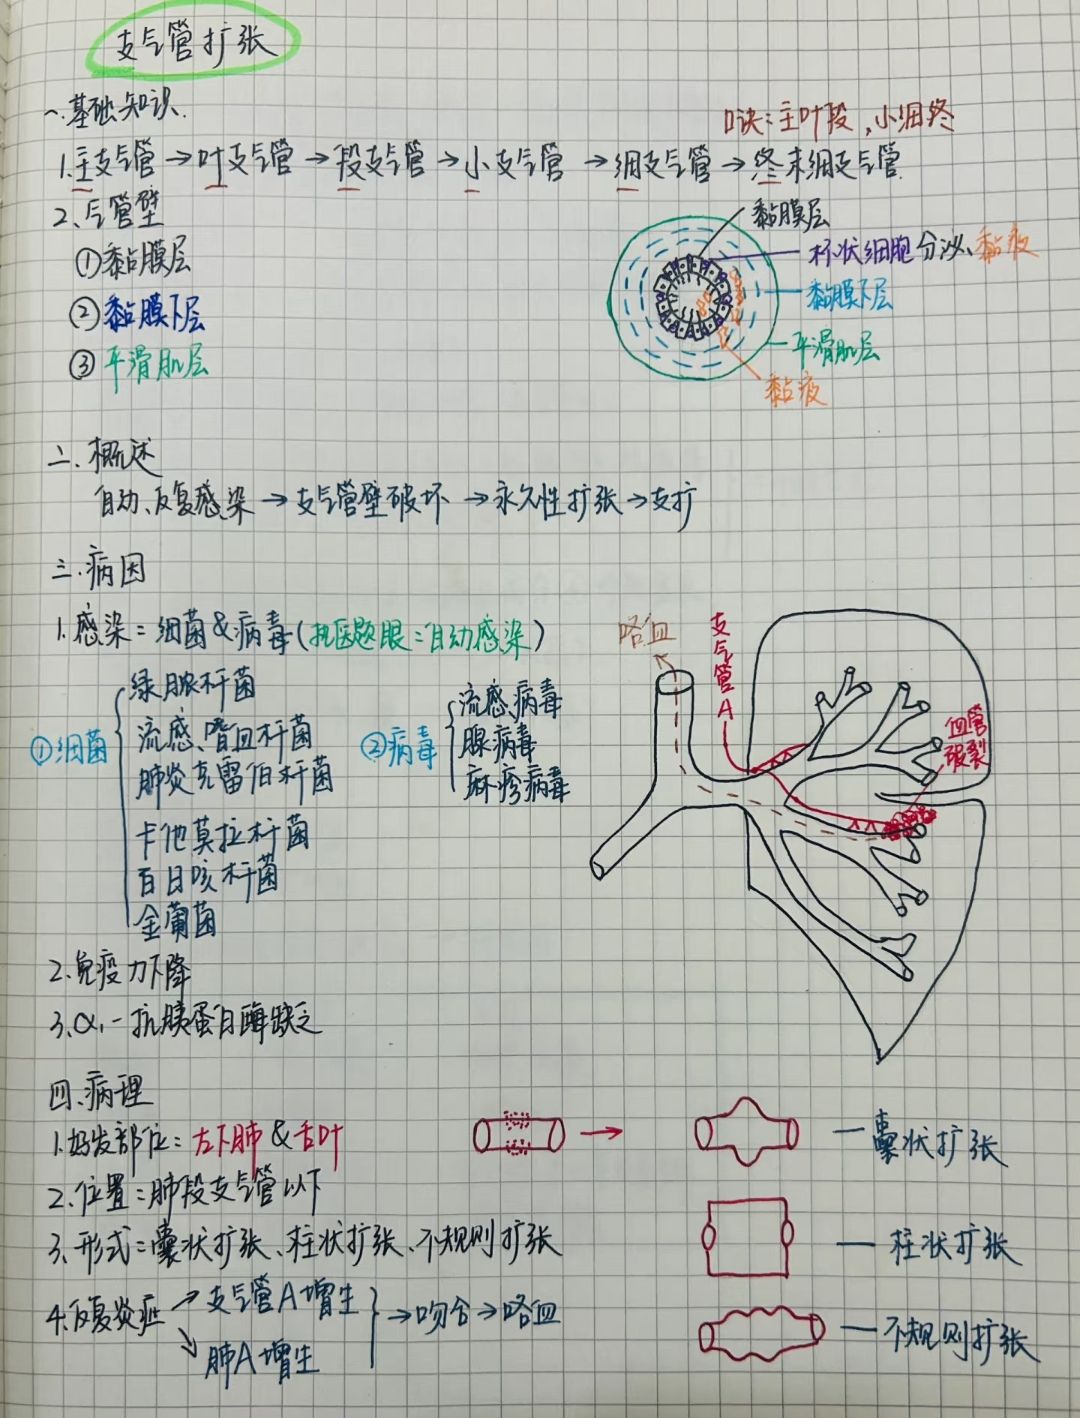 支气管扩张
一.基础知识.
口诀:主叶段,小细终
1.主支气管→叶支气管→段支气管→小支气管→细支气管→终末细支气管.
2.气管壁
①黏膜层
②黏膜下层
③平滑肌层
黏膜层
杯状细胞分泌、黏液
黏膜下层
平滑肌层
黏液
二.概述
自动、反复感染→支气管壁破坏→永久性扩张→支扩
三.病因
1.感染:细菌&病毒(执医题眼:自动感染)
①细菌
绿脓杆菌
流感、嗜血杆菌
肺炎克雷伯杆菌
卡他莫拉杆菌
百日咳杆菌
金葡菌
②病毒
流感病毒
腺病毒
麻疹病毒
咯血
支气管A
血管破裂
2.免疫力下降
3.α₁-抗胰蛋白酶缺乏
四.病理
1.好发部位:左下肺&舌叶
2.位置:肺段支气管以下
3.形式:囊状扩张、柱状扩张、不规则扩张
4.反复炎症→支气管A增生
肺A增生
→吻合→咯血
囊状扩张
柱状扩张
不规则扩张